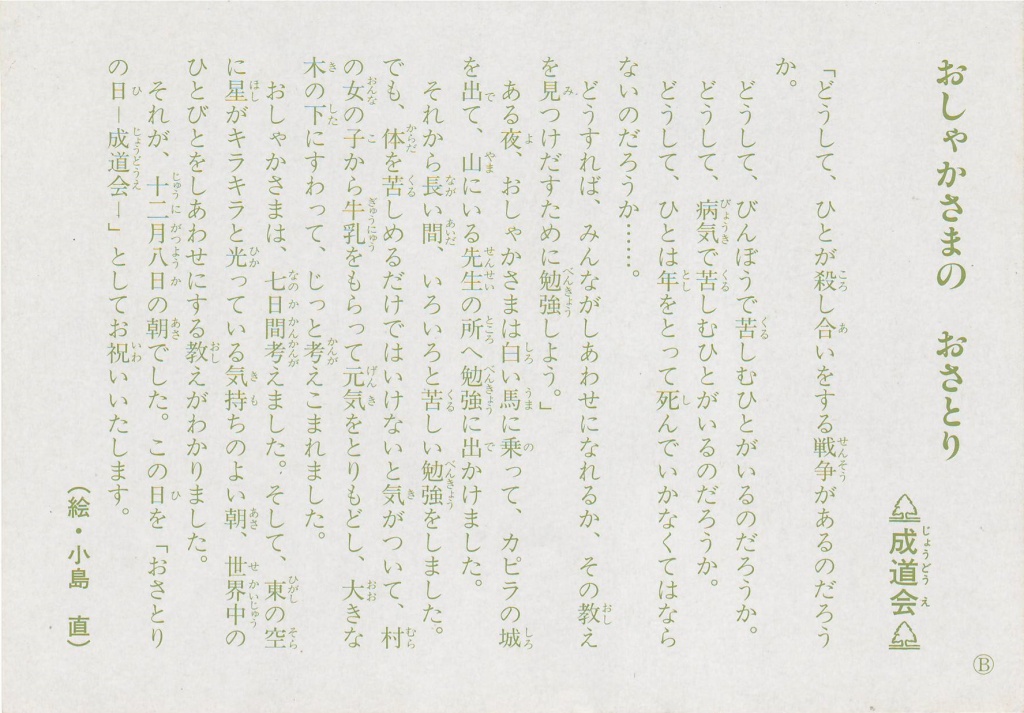 おしゃかさまの　おさとり
成道会
Ⓑ
「どうして、ひとが殺し合いをする戦争があるのだろう
か。
どうして、びんぼうで苦しむひとがいるのだろうか。
どうして、病気で苦しむひとがいるのだろうか。
どうして、ひとは年をとって死んでいかなくてはなら
ないのだろうか………。
どうすれば、みんながしあわせになれるか、その教え
を見つけだすために勉強しよう。」
ある夜、おしゃかさまは白い馬に乗って、カピラの城
を出て、山にいる先生の所へ勉強に出かけました。
それから長い間、いろいろと苦しい勉強をしました。
でも、体を苦しめるだけではいけないと気がついて、村
の女の子から牛乳をもらって元気をとりもどし、大きな
木の下にすわって、じっと考えこまれました。
おしゃかさまは、七日間考えました。そして、東の空
に星がキラキラと光っている気持ちのよい朝、世界中の
ひとびとをしあわせにする教えがわかりました。
それが、十二月八日の朝でした。この日を「おさとり
の日―成道会―」としてお祝いいたします。
（絵・小島　直）